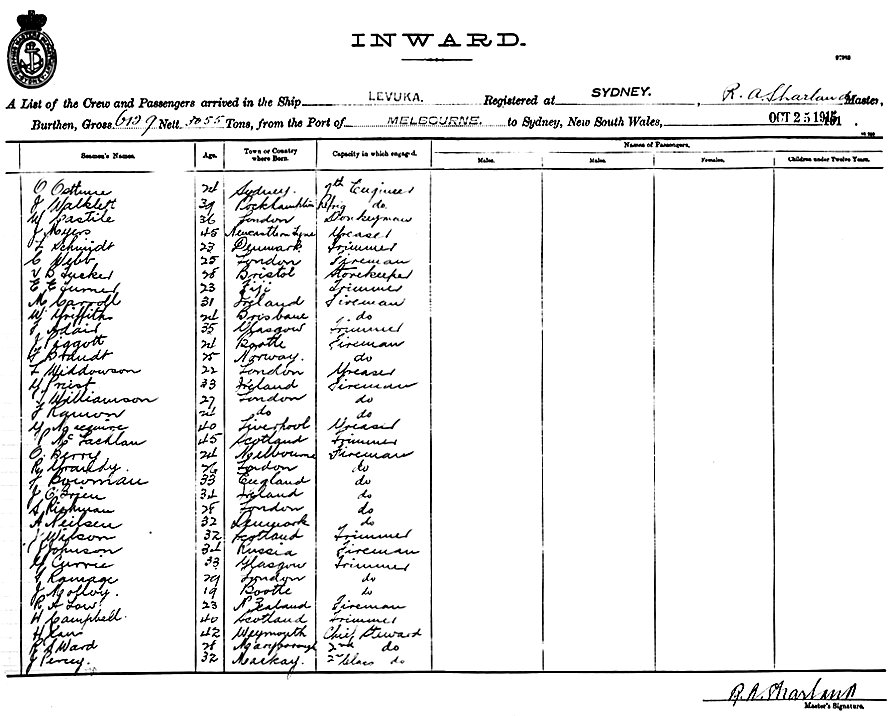 INWARD.
A List of the Crew and Passengers arrived in the Ship LEVUKA. Registered at SYDNEY. , R. A Sharland Master,
Burthen, Gross 6129 Nett 3055 Tons, from the Port of MELBOURNE. to Sydney, New South Wales, OCT 25 1915 191 .
Names of Passengers.
Seamen's Names. Age. Town or Country where Born. Capacity in which engaged. Males. Males. Females. Children under Twelve Years.
24 Sydney. 7th Engineer
J Walklett 39 Rockhampton Rfrig do.
W Castile 36 London Donkeyman
J Myers 45 Newcastle on Tyne Greaser
F Schmidt 23 Denmark Trimmer
C Webb 25 London Fireman
V B Tucker 28 Bristol Storekeeper
E E Turner 23 Fiji Trimmer
M Carroll 31 Ireland Fireman
W Griffiths 24 Brisbane do
J Adair 35 Glasgow Trimmer
J Piggott 24 Bootle Fireman
Brandt Norway. do
F Widdowson 22 London Greaser
Priest 33 Ireland Fireman
Williamson 27 London do
J 24 do do
40 Liverpool Greaser
McLachlan 45 Scotland Trimmer
C. Berry 24 Melbourne Fireman
R Grandy. 26 London do
Bowman 33 England do
J O'Brien 34 Ireland do
28 London do
A Neilsen 32 Denmark do
J Wilson 32 Scotland Trimmer
Johnson 34 Russia Fireman
Currie 33 Glasgow Trimmer
Ramage 29 London do
J 19 Bootle do
R A Low. 23 N Zealand Fireman
H Campbell. 40 Scotland Trimmer
H 42 Weymouth Chief Steward
Ward 28 Maryborough 2nd do
J Percy. 32 Mackay. 2nd class do
R. A. Sharland
Master's Signature.